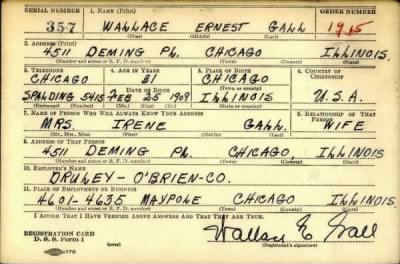 SERIAL NUMBER 1. NAME (Print) ORDER NUMBER
357 WALLACE ERNEST GALL 1915
(First) (Middle) (Last)
2. ADDRESS (Print)
4511 DEMING PL. CHICAGO ILLINOIS.
(Number and street or R. F. D. number) (Town) (County) (State)
3. TELEPHONE 4. AGE IN YEARS 5. PLACE OF BIRTH 6. COUNTRY OF CITIZENSHIP
CHICAGO 31 CHICAGO
DATE OF BIRTH (Town or county)
SPALDING 5415 FEB 25 1909 ILLINOIS U.S.A.
(Exchange) (Number) (Mo.) (Day) (Yr.) (State or country)
7. NAME OF PERSON WHO WILL ALWAYS KNOW YOUR ADDRESS 8. RELATIONSHIP OF THAT PERSON
MRS. IRENE GALL. WIFE
(Mr., Mrs., Miss) (First) (Middle) (Last)
9. ADDRESS OF THAT PERSON
4511 DEMING PL. CHICAGO, ILLINOIS.
(Number and street or R. F. D. number) (Town) (County) (State)
10. EMPLOYER'S NAME
DRULEY-O'BRIEN-CO.
11. PLACE OF EMPLOYMENT OR BUSINESS
4601-4635 MAYPOLE CHICAGO ILLINOIS.
(Number and street or R. F. D. number) (Town) (County) (State)
I AFFIRM THAT I HAVE VERIFIED ABOVE ANSWERS AND THAT THEY ARE TRUE.
REGISTRATION CARD
D. S. S. Form 1 Wallace E Gall
(Registrant's signature)